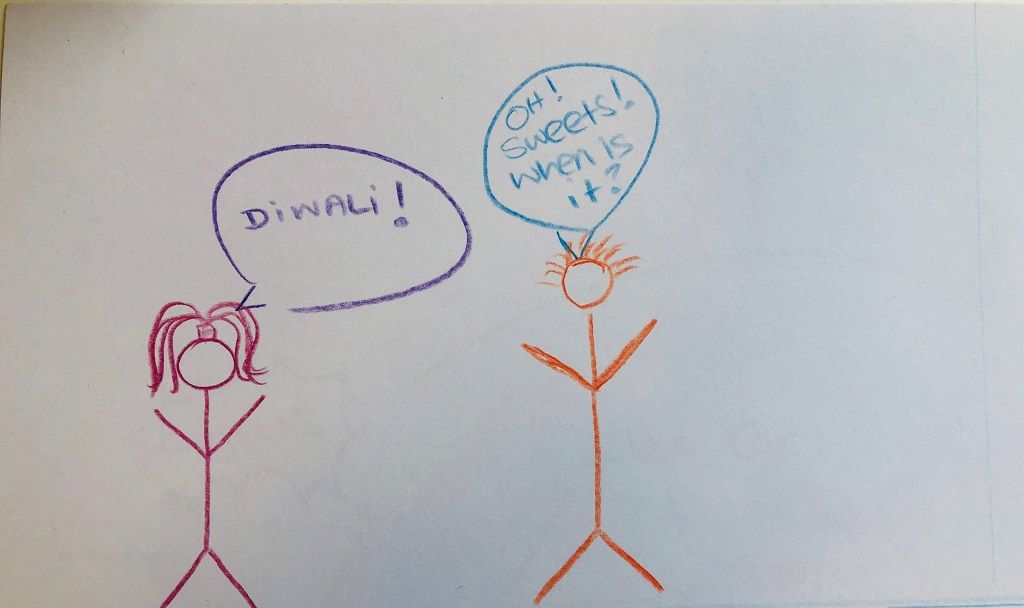 DiWALi!
OH!
sweets!
when is
it?